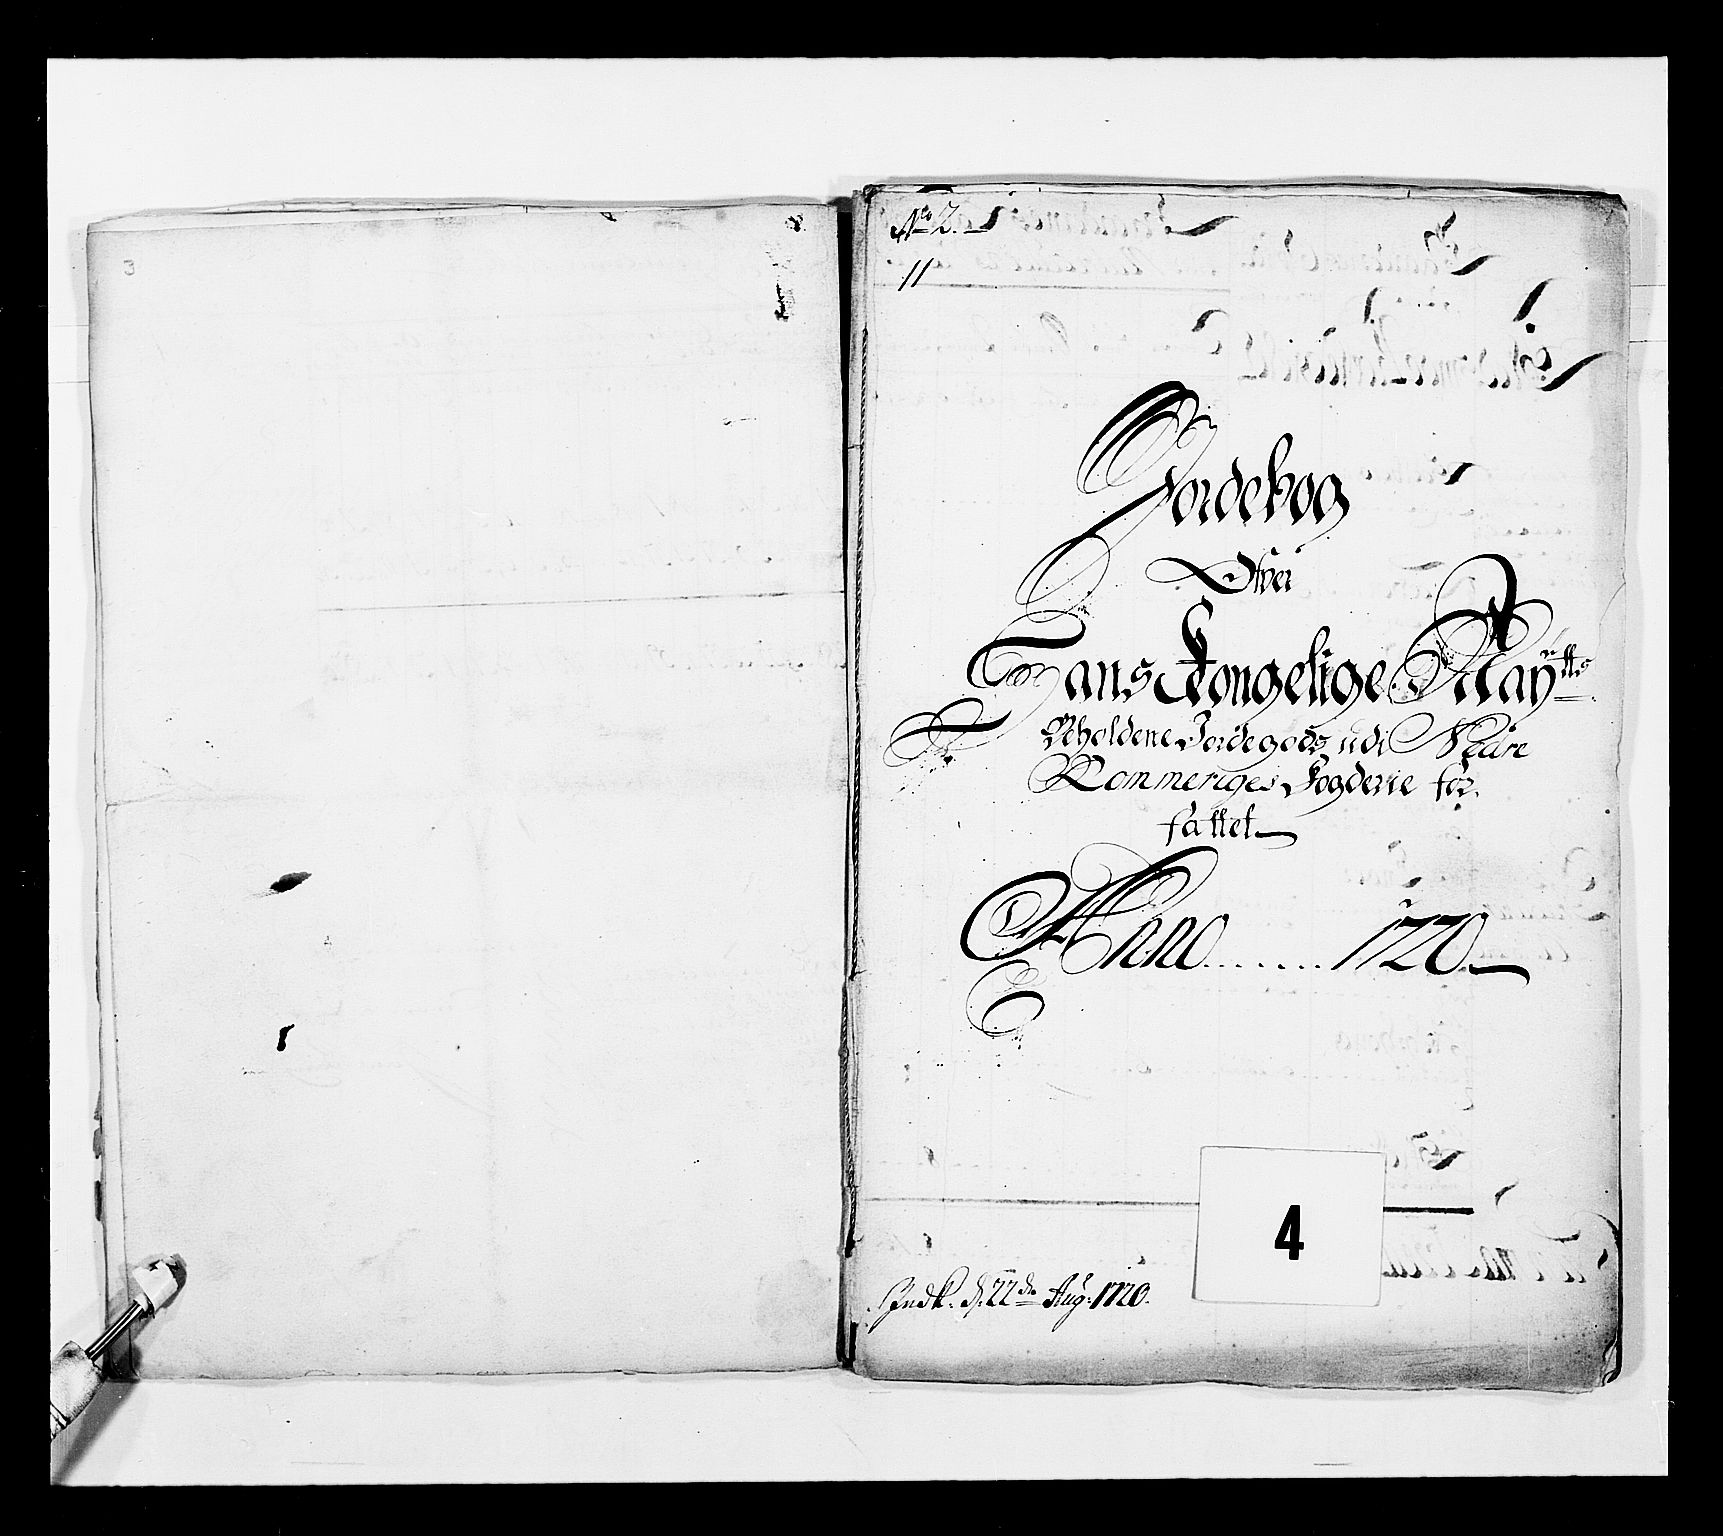 No 2.
11
Jordebog
Ofver
Hans Kongelige Maÿtts
Beholdene Jordegods udi Nedre
Rommeriges Fogderie for
fattet
Anno ....... 1720
4
Indk. d. 22de Aug: 1720.